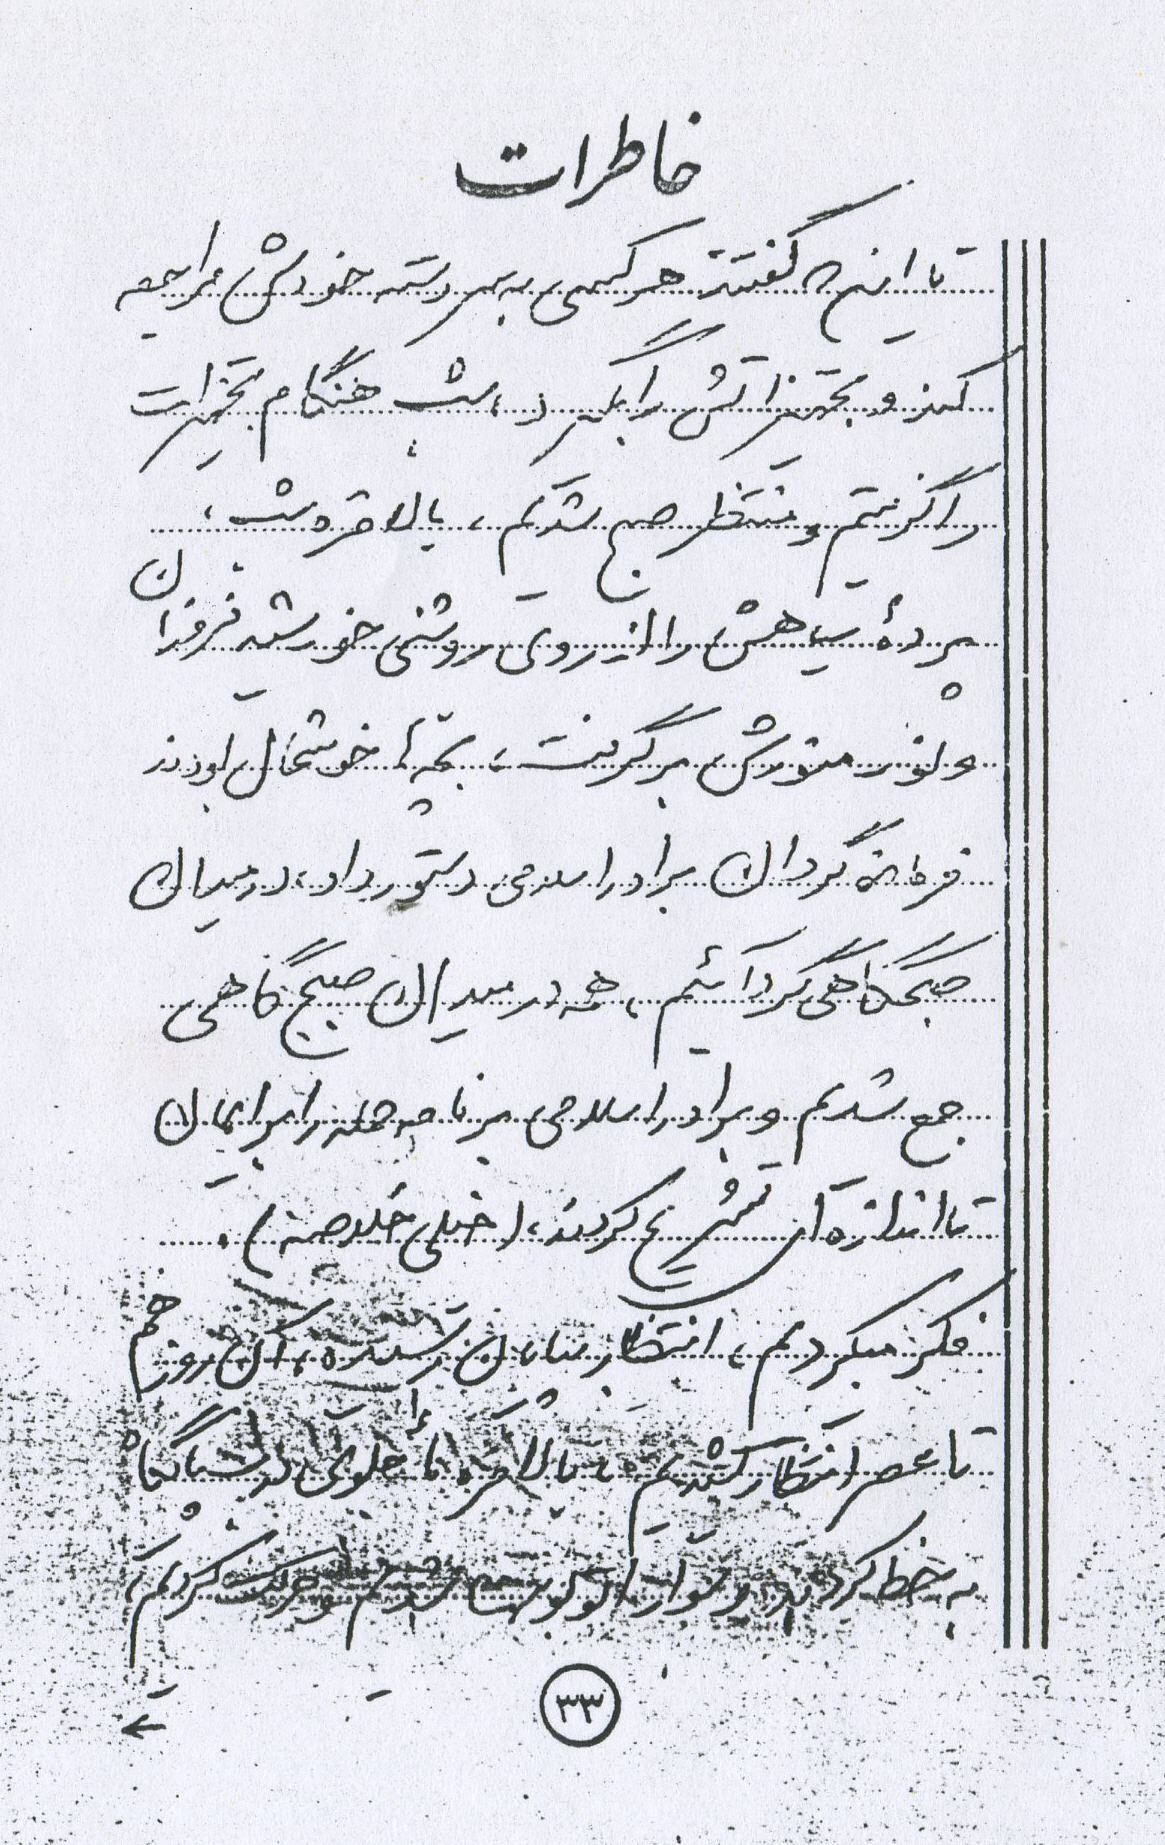 خاطرات
تا اینکه گفتند هر کسی به سر دسته خودش مراجعه
کند و تجهیزاتش را بگیرد، شب هنگام تجهیزات
را گرفتیم و منتظر صبح شدیم، بالاخره شب،
پردهٔ سیاهش را از روی روشنی خورشید فروزان
و نور منورش برگرفت، بچه‌ها خوشحال بودند
فرمانده گردان برادر اسلامی دستور داد، در میدان
صبحگاهی گرد آئیم، همه در میدان صبح گاهی
جمع شدیم و برادر اسلامی برنامه حمله را برایمان
تا اندازه‌ای تشریح کردند، (خیلی خلاصه).
فکر میکردیم، انتظار بپایان رسیده، آن روز هم
تا عصر انتظار کشیدیم، بالاخره ما را جلوی آسایشگاه
به خط کردند و سوار اتوبوسها شدیم و حرکت کردیم،
۳۳
←